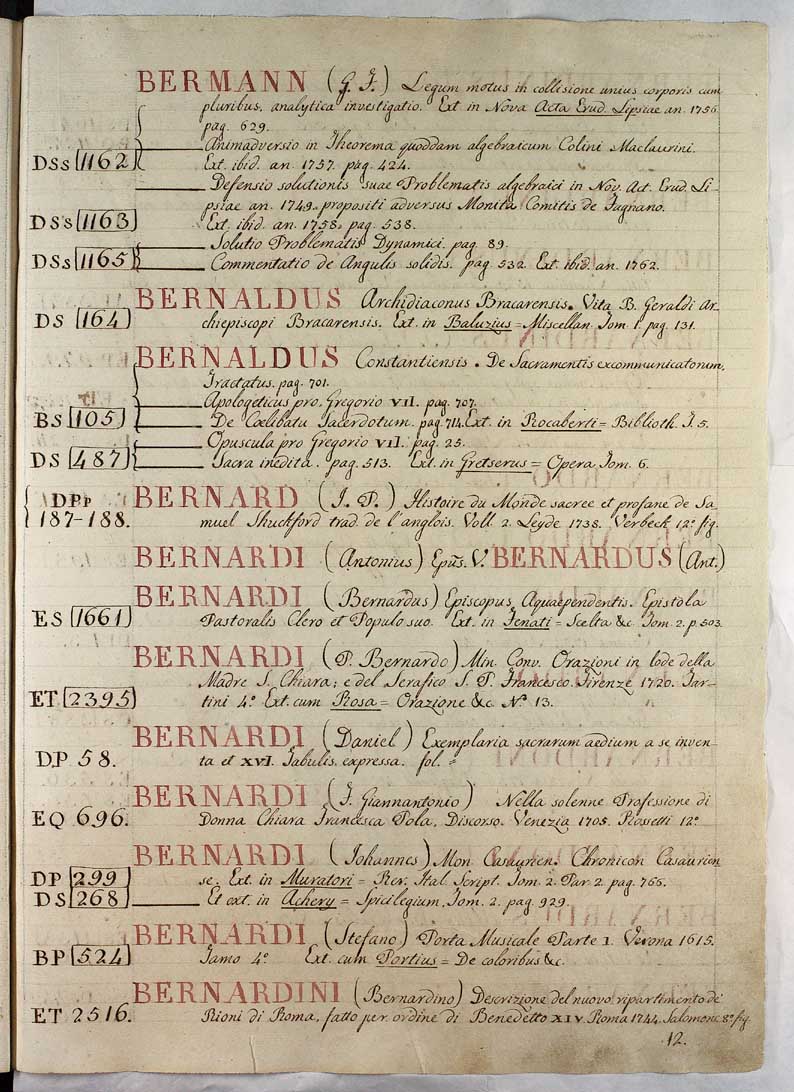 BERMANN (G. F.) Legum motus in collisione unius corporis cum
pluribus, analytica investigatio. Ext in Nova Acta Erud. Lipsiae an. 1756.
pag. 629.
Animadversio in Theorema quoddam algebraicum Colini Maclaurini.
DSs 1162 Ext. ibid. an. 1757. pag. 424.
Defensio solutionis suae Problematis algebraici in Nov. Act. Erud. Li-
psiae an. 1749. propositi adversus Monita Comitis de Fagnano.
DSs 1163 Ext. ibid. an. 1758. pag. 538.
Solutio Problematis Dynamici. pag. 89.
DSs 1165 Commentatio de Angulis solidis. pag. 532. Ext. ibid. an. 1762.
BERNALDUS Archidiaconus Bracarensis. Vita B. Geraldi Ar-
DS 164 chiepiscopi Bracarensis. Ext. in Baluzius = Miscellan. Tom. 1. pag. 131.
BERNALDUS Constantiensis. De Sacramentis excommunicatorum,
Tractatus. pag. 701.
Apologeticus pro Gregorio VII. pag. 707.
BS 105 De Coelibatu Sacerdotum. pag. 714. Ext. in Rocaberti = Biblioth. T. 5.
Opuscula pro Gregorio VII. pag. 25.
DS 487 Sacra inedita. pag. 513. Ext. in Gretserus = Opera Tom. 6.
DPp BERNARD (J. P.) Histoire du Monde sacree et profane de Sa-
187-188. muel Shuckford trad. de l'anglois. Voll. 2. Leyde 1738. Verbeck 12.º fig.
BERNARDI (Antonius) Epũs. V. BERNARDUS (Ant.)
BERNARDI (Bernardus) Episcopus Aquaependentis. Epistola
ES 1661 Pastoralis Clero et Populo suo. Ext. in Zenati = Scelta &c. Tom. 2. p. 503.
BERNARDI (P. Bernardo) Min. Conv. Orazioni in lode della
Madre S. Chiara; e del Serafico S. P. Francesco. Firenze 1720. Tar-
ET 2395 tini 4.º Ext. cum Rosa = Orazione &c. N.º 13.
BERNARDI (Daniel) Exemplaria sacrarum aedium a se inven-
DP 58. ta et XVI. Tabulis expressa. fol.
BERNARDI (F. Giannantonio) Nella solenne Professione di
EQ 696. Donna Chiara Francesca Pola, Discorso. Venezia 1705. Rossetti 12.º
BERNARDI (Johannes) Mon. Casaurien. Chronicon Casaurien
DP 299 se. Ext. in Muratori = Rer. Ital. Script. Tom. 2. Par. 2. pag. 766.
DS 268 Et ext. in Achery = Spicilegium, Tom. 2. pag. 929.
BERNARDI (Stefano) Porta Musicale Parte 1. Verona 1615.
BP 524 Tamo 4.º Ext. cum Portius = De coloribus &c.
BERNARDINI (Bernardino) Descrizione del nuovo ripartimento de'
ET 2516. Rioni di Roma, fatto per ordine di Benedetto XIV. Roma 1744. Salomoni 8.º fig.
12.